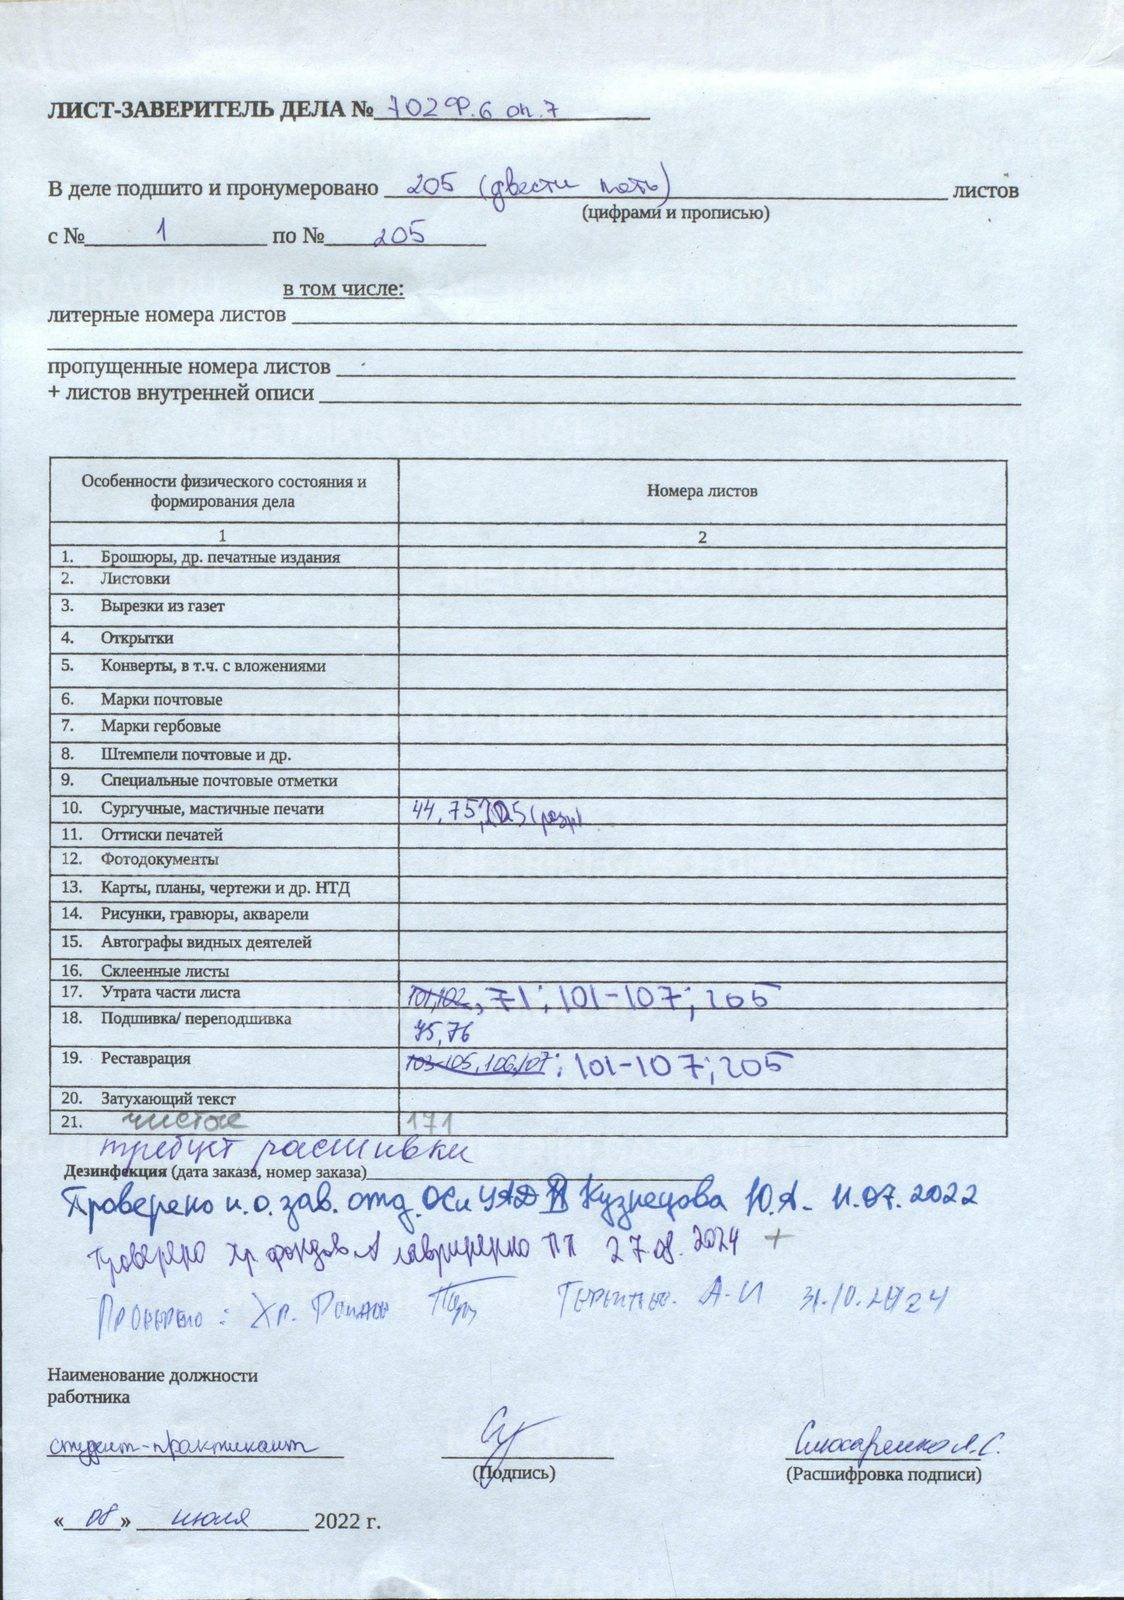 ЛИСТ-ЗАВЕРИТЕЛЬ ДЕЛА № 702 Ф.6 оп.7
В деле подшито и пронумеровано 205 (двести пять) листов
(цифрами и прописью)
с № 1 по № 205
в том числе:
литерные номера листов
пропущенные номера листов
+ листов внутренней описи
Особенности физического состояния и формирования дела Номера листов
1 2
1. Брошюры, др. печатные издания
2. Листовки
3. Вырезки из газет
4. Открытки
5. Конверты, в т.ч. с вложениями
6. Марки почтовые
7. Марки гербовые
8. Штемпели почтовые и др.
9. Специальные почтовые отметки
10. Сургучные, мастичные печати 44, 75, 205
11. Оттиски печатей
12. Фотодокументы
13. Карты, планы, чертежи и др. НТД
14. Рисунки, гравюры, акварели
15. Автографы видных деятелей
16. Склеенные листы
17. Утрата части листа 101,102, 71; 101-107; 205
18. Подшивка/ переподшивка 75, 76
19. Реставрация 103-105, 106,107; 101-107; 205
20. Затухающий текст
21. чистые 171
требует расшивки
Дезинфекция (дата заказа, номер заказа)
Проверено и.о. зав. отд. ОСиУАД Кузнецова Ю.А. 11.07.2022
Проверено хр. фондов Гавриленко 27.08.2024 +
Проверено: Хр. Фондов А.И 31.10.2024
Наименование должности
работника
студент-практикант Слюсаренко А.С.
(Подпись) (Расшифровка подписи)
« 08 » июля 2022 г.